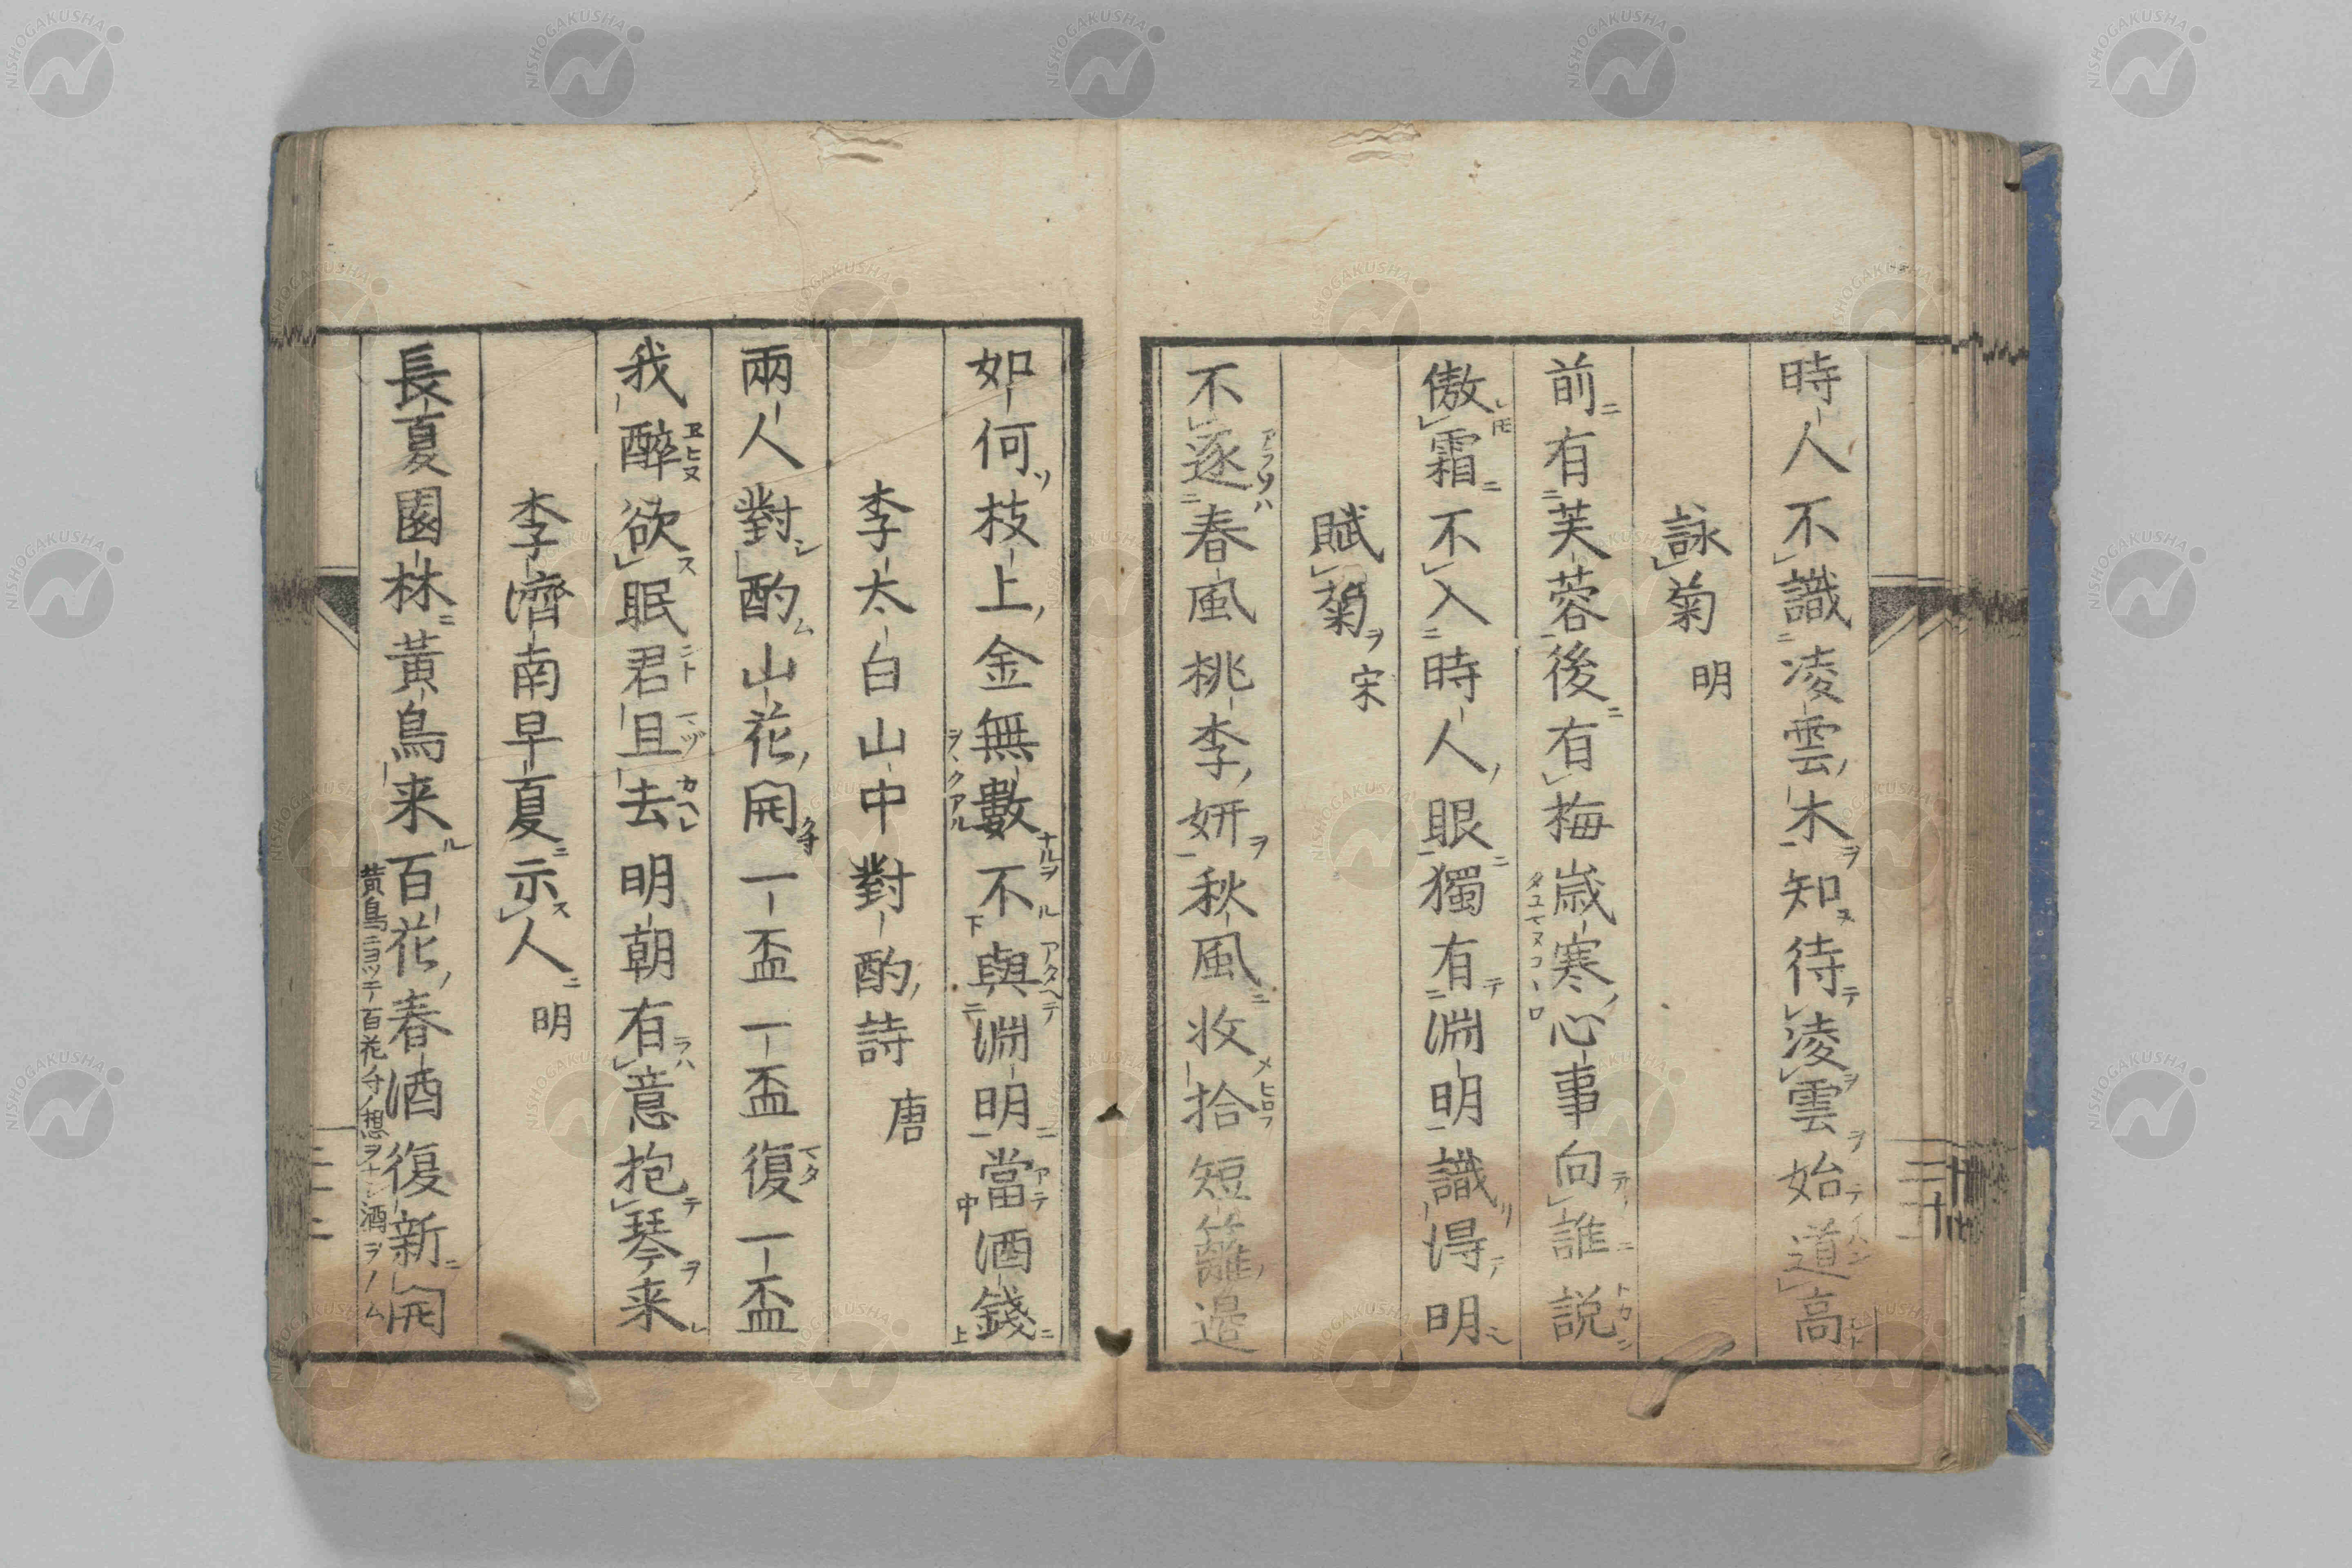 時人不識凌雲木知待凌雲始道高
詠菊 明
前有芙蓉後有梅歳寒心事向誰説
傲霜不入時人眼獨有淵明識得明
賦菊 宋
不逐春風桃李妍秋風收拾短籬邉
如何枝上金無數不與淵明當酒錢
李太白山中對酌詩 唐
兩人對酌山花開一盃一盃復一盃
我醉欲眠君且去明朝有意抱琴来
李濟南早夏示人 明
長夏園林黄鳥来百花春酒復新開
黄鳥ニヨツテ百花今ノ想ヲナシ酒ヲノム
NISHOGAKUSHA